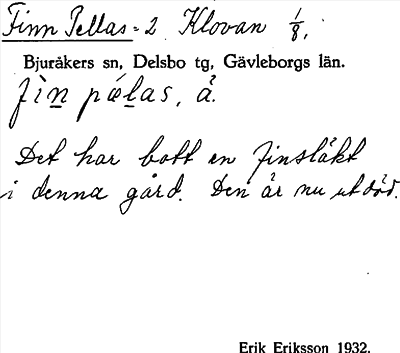 Finn Pellas = 2 Klovan 1/8,
Bjuråkers sn, Delsbo tg, Gävleborgs län.
fìn pǽlas, å.
Det har bott en finsläkt
i denna gård. Den är nu utdöd.
Erik Eriksson 1932.